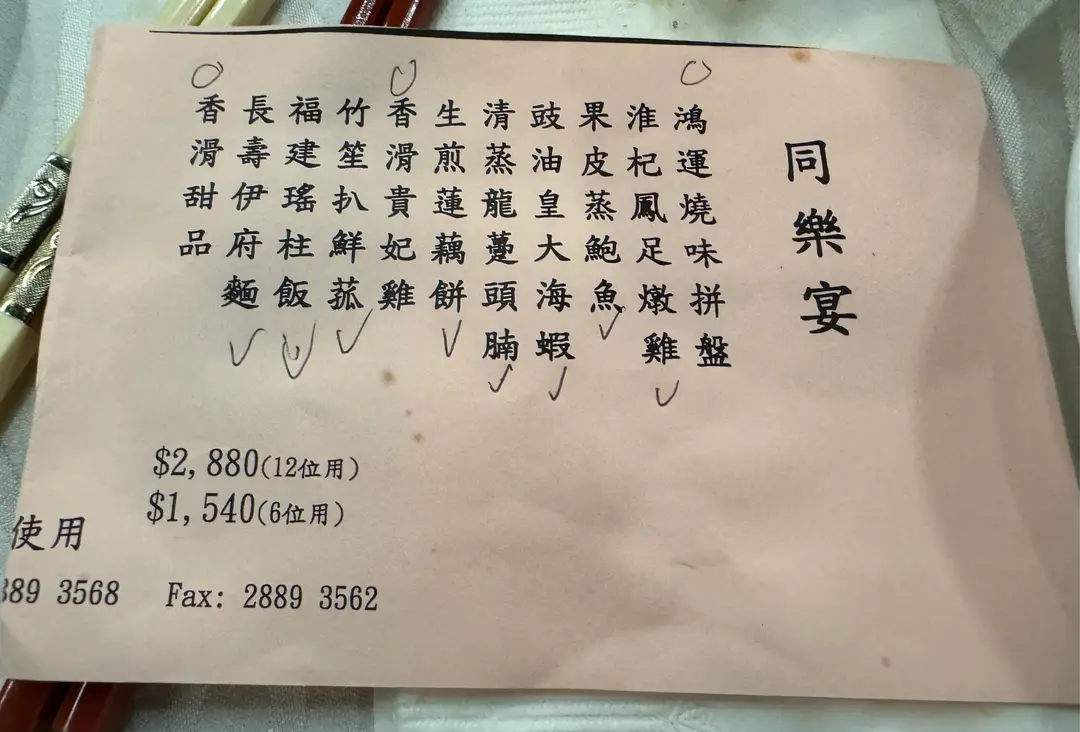 同樂宴
鴻運燒味拼盤
淮杞鳳足燉雞
果皮蒸鮑魚
豉油皇大海蝦
清蒸龍躉頭腩
生煎蓮藕餅
香滑貴妃雞
竹笙扒鮮菰
福建瑤柱飯
長壽伊府麵
香滑甜品
$2,880(12位用)
$1,540(6位用)
使用
889 3568 Fax: 2889 3562